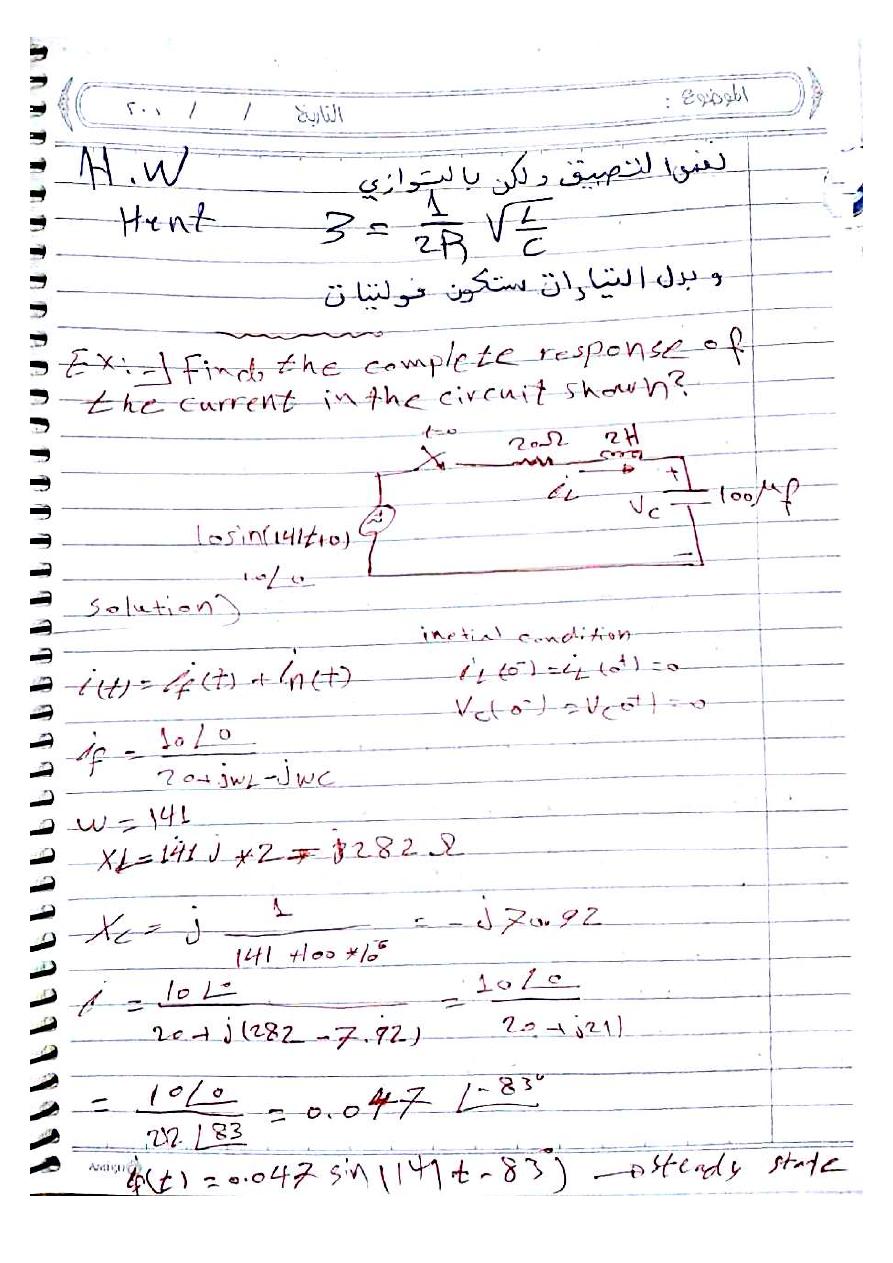 الموضوع :
التاريخ / / ٢٠٠
H.W نفس التطبيق ولكن بالتوازي
Hent 3 = 1/2R √L/C
و بدل التيارات ستكون فولتيات
Ex:-] find the complete response of
the current in the circuit shown?
t=0 20Ω 2H
iL + Vc - 100μf
10sin(141t+0)
10∠0
solution)
inetial condition
i(t) = if(t) + in(t) iL(0-) = iL(0+) = 0
Vc(0-) = Vc(0+) = 0
if = 10∠0 / 20+jwL-jwc
w = 141
XL = 141j *2 = j282Ω
Xc = j 1 / 141*100*10-6 = -j70.92
i = 10∠0 / 20+j(282-7.92) = 10∠0 / 20+j211
= 10∠0 / 212∠83 = 0.047 ∠-83°
if(t) = 0.047 sin(141t-83°) → steady state